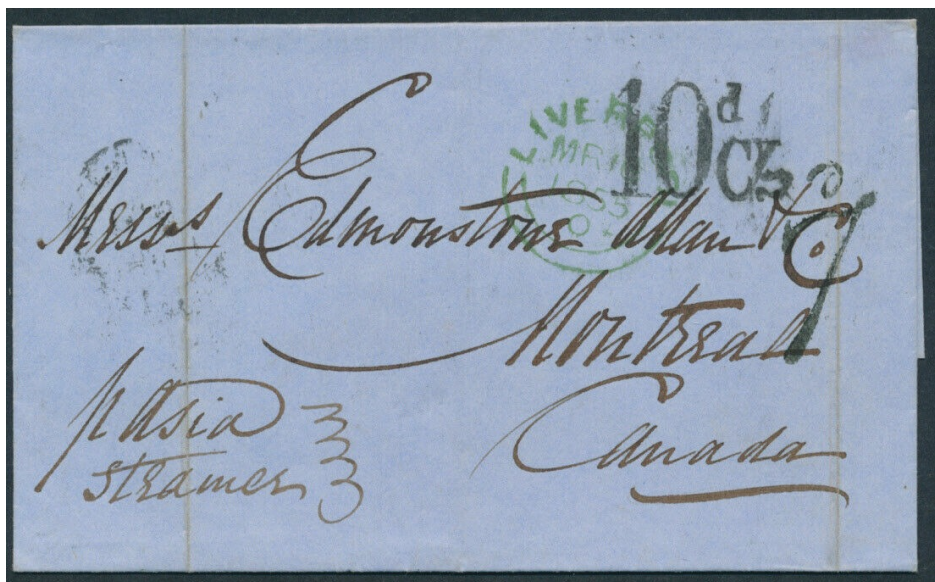 LIVER
10d Cy
MR
Messrs Edmonstone Allan & Co.
Montreal
Canada
p Asia
Steamer